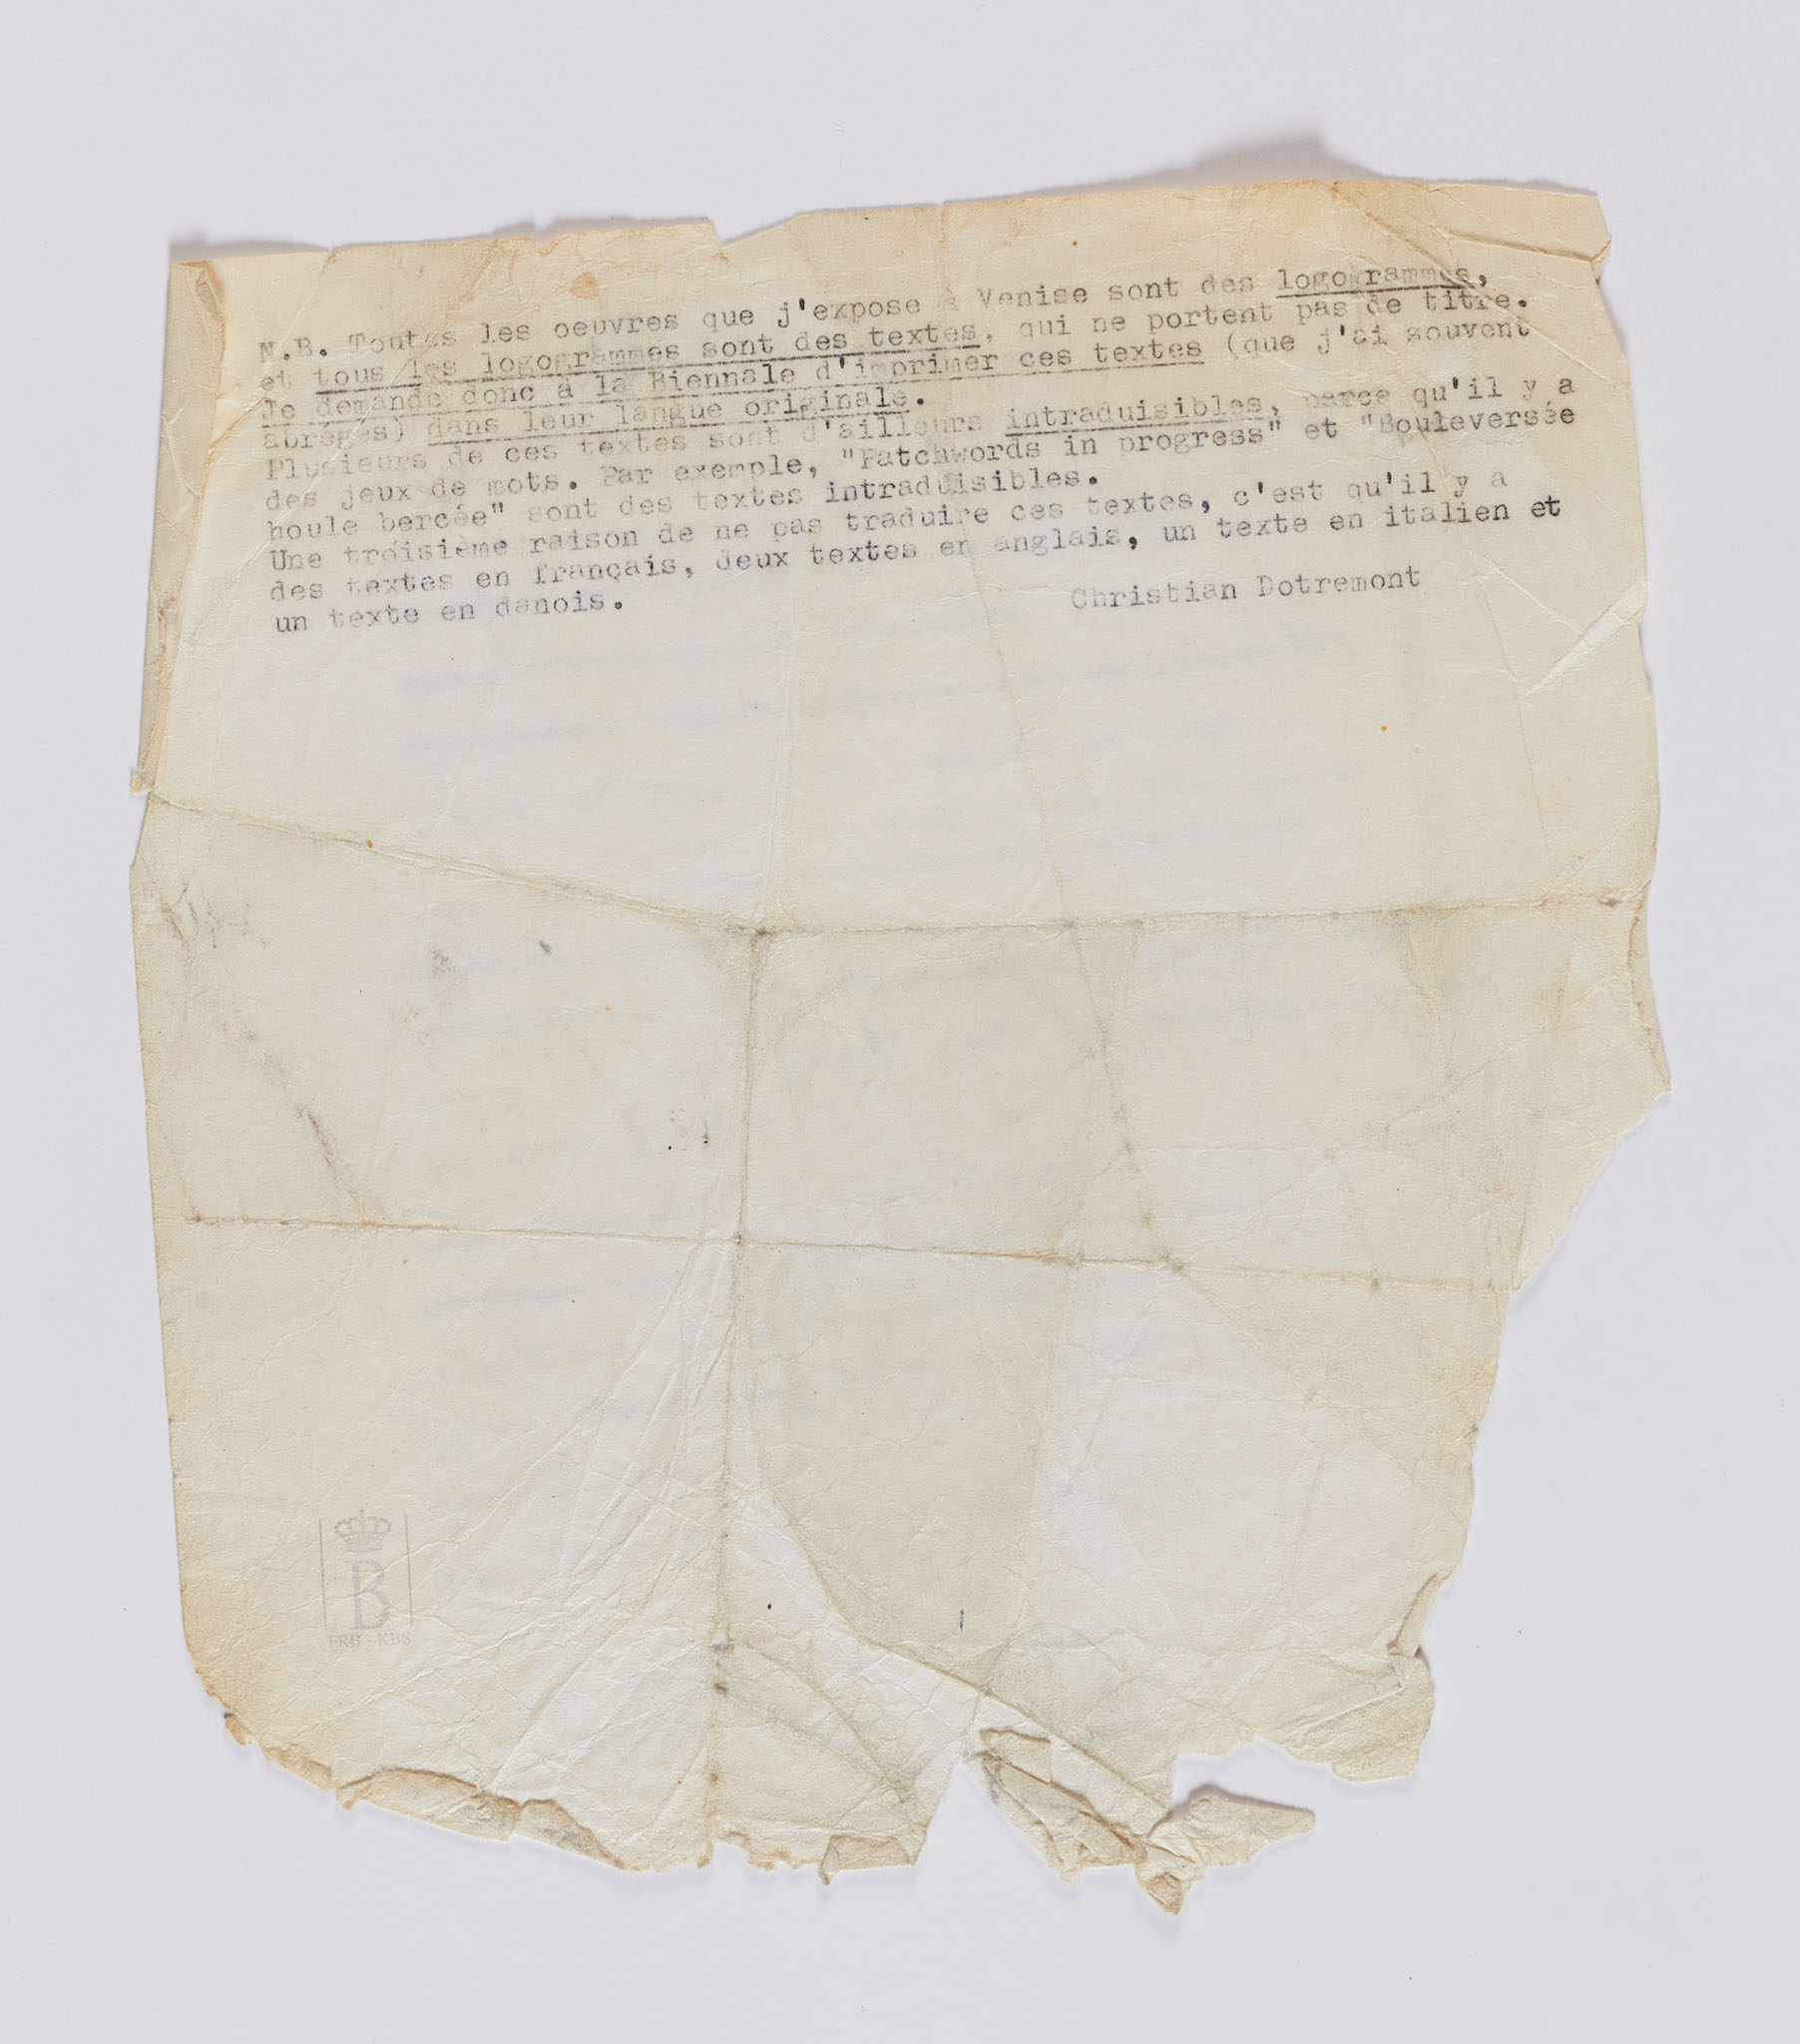 N.B. Toutes les oeuvres que j'expose à Venise sont des logogrammes,
et tous les logogrammes sont des textes, qui ne portent pas de titre.
Je demande donc à la Biennale d'imprimer ces textes (que j'ai souvent
abrégés) dans leur langue originale.
Plusieurs de ces textes sont d'ailleurs intraduisibles, parce qu'il y a
des jeux de mots. Par exemple, "Patchwords in progress" et "Bouleversée
houle bercée" sont des textes intraduisibles.
Une troisième raison de ne pas traduire ces textes, c'est qu'il y a
des textes en français, deux textes en anglais, un texte en italien et
un texte en danois.
Christian Dotremont
B
FRB-KBS